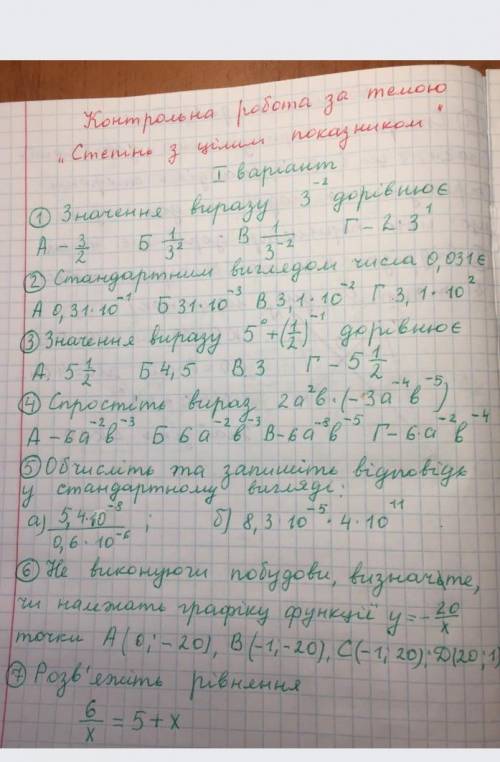 Контрольна робота за темою
„Степінь з цілим показником"
I варіант
① Значення виразу 3⁻² дорівнює
А -3/2 Б 1/3² В 1/3⁻² Г -2·3¹
② Стандартним виглядом числа 0,031 є
А 0,31·10⁻¹ Б 31·10⁻³ В 3,1·10⁻² Г 3,1·10²
③ Значення виразу 5⁰+(1/2)⁻¹ дорівнює
А. 5 1/2 Б 4,5 В 3 Г -5 1/2
④ Спростіть вираз 2a²b·(-3a⁻⁴b⁻⁵)
А -6a⁻²b⁻³ Б 6a⁻²b⁻³ В -6a⁻⁸b⁻⁵ Г -6·a⁻²b⁻⁴
⑤ Обчисліть та запишіть відповідь
у стандартному вигляді:
а) 5,4·10⁻⁸/0,6·10⁻⁶ ; б) 8,3·10⁻⁵·4·10¹¹.
⑥ Не виконуючи побудови, визначте,
чи належать графіку функції y=-20/x
точки A(0;-20), B(-1;-20), C(-1;20); D(20;1)
⑦ Розв'яжіть рівняння
6/x = 5+x